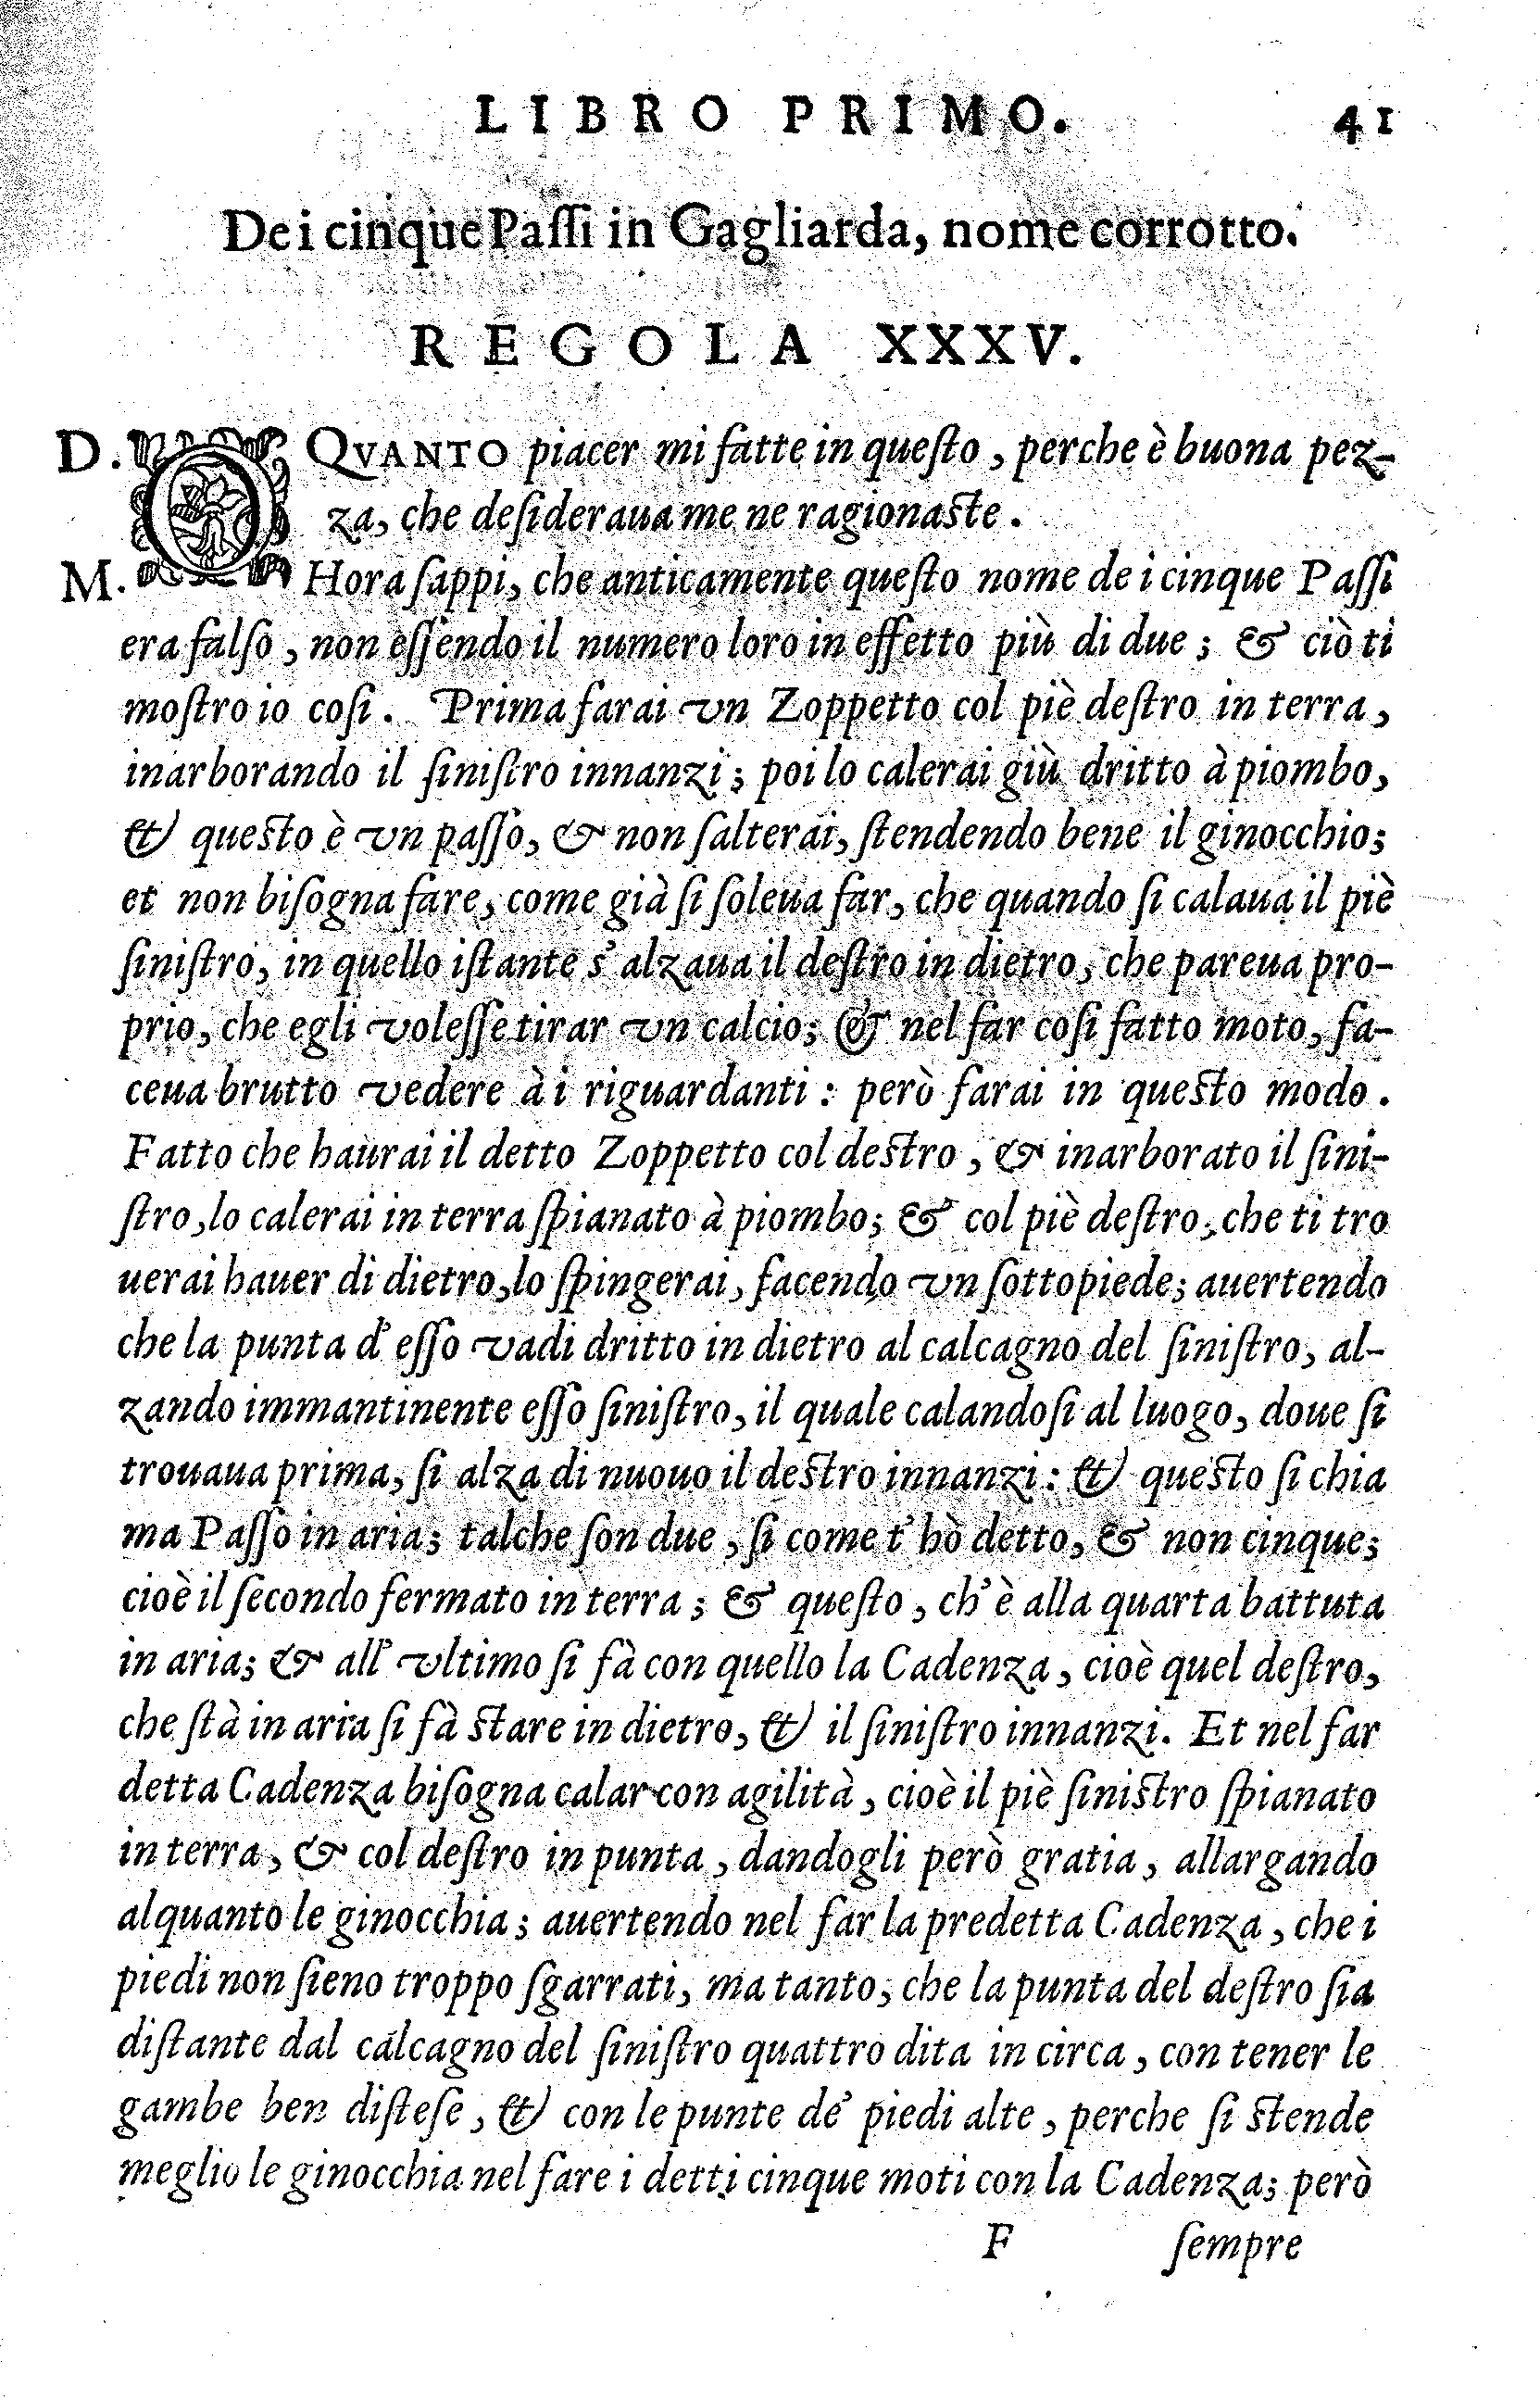 LIBRO PRIMO. 41
De i cinque Paſſi in Gagliarda, nome corrotto.
REGOLA XXXV.
D. O QVANTO piacer mi fatte in queſto, perche è buona pez-
za, che deſideraua me ne ragionaſte.
M. Hora ſappi, che anticamente queſto nome de i cinque Paſſi
era falſo, non eſſendo il numero loro in effetto più di due; & ciò ti
moſtro io coſi. Prima farai vn Zoppetto col piè deſtro in terra,
inarborando il ſiniſtro innanzi; poi lo calerai giù dritto à piombo,
& queſto è vn paſſo, & non ſalterai, ſtendendo bene il ginocchio;
et non biſogna fare, come già ſi ſoleua far, che quando ſi calaua il piè
ſiniſtro, in quello iſtante s' alzaua il deſtro in dietro, che pareua pro-
prio, che egli voleſſe tirar vn calcio; & nel far coſi fatto moto, fa-
ceua brutto vedere à i riguardanti: però farai in queſto modo.
Fatto che haurai il detto Zoppetto col deſtro, & inarborato il ſini-
ſtro, lo calerai in terra ſpianato à piombo; & col piè deſtro, che ti tro
uerai hauer di dietro, lo ſpingerai, facendo vn ſottopiede; auertendo
che la punta d' eſſo vadi dritto in dietro al calcagno del ſiniſtro, al-
zando immantinente eſſo ſiniſtro, il quale calandoſi al luogo, doue ſi
trouaua prima, ſi alza di nuouo il deſtro innanzi: & queſto ſi chia
ma Paſſo in aria; talche ſon due, ſi come t' hò detto, & non cinque;
cioè il ſecondo fermato in terra; & queſto, ch' è alla quarta battuta
in aria; & all' vltimo ſi fà con quello la Cadenza, cioè quel deſtro,
che ſtà in aria ſi fà ſtare in dietro, & il ſiniſtro innanzi. Et nel far
detta Cadenza biſogna calar con agilità, cioè il piè ſiniſtro ſpianato
in terra, & col deſtro in punta, dandogli però gratia, allargando
alquanto le ginocchia; auertendo nel far la predetta Cadenza, che i
piedi non ſieno troppo ſgarrati, ma tanto, che la punta del deſtro ſia
diſtante dal calcagno del ſiniſtro quattro dita in circa, con tener le
gambe ben diſteſe, & con le punte de' piedi alte, perche ſi ſtende
meglio le ginocchia nel fare i detti cinque moti con la Cadenza; però
F ſempre